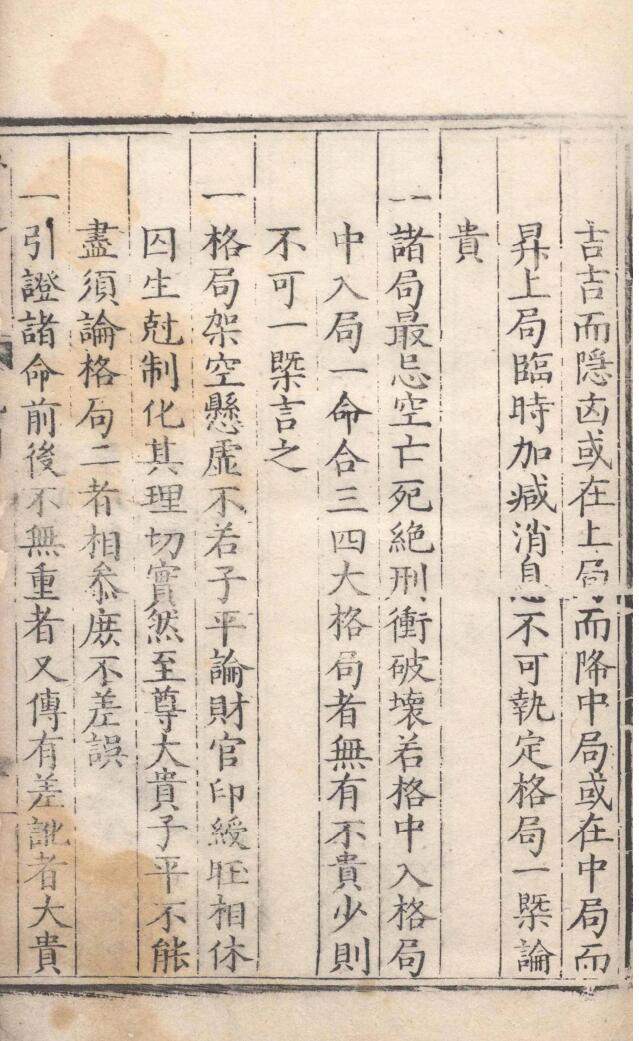 吉吉而隱凶或在上局而降中局或在中局而
昇上局臨時加减消息不可執定格局一槩論
貴
一諸局最忌空亡死絶刑衝破壞若格中入格局
中入局一命合三四大格局者無有不貴少則
不可一槩言之
一格局架空懸虛不若子平論財官印綬旺相休
囚生尅制化其理切實然至尊大貴子平不能
盡須論格局二者相叅庶不差誤
一引證諸命前後不無重者又傳有差訛者大貴